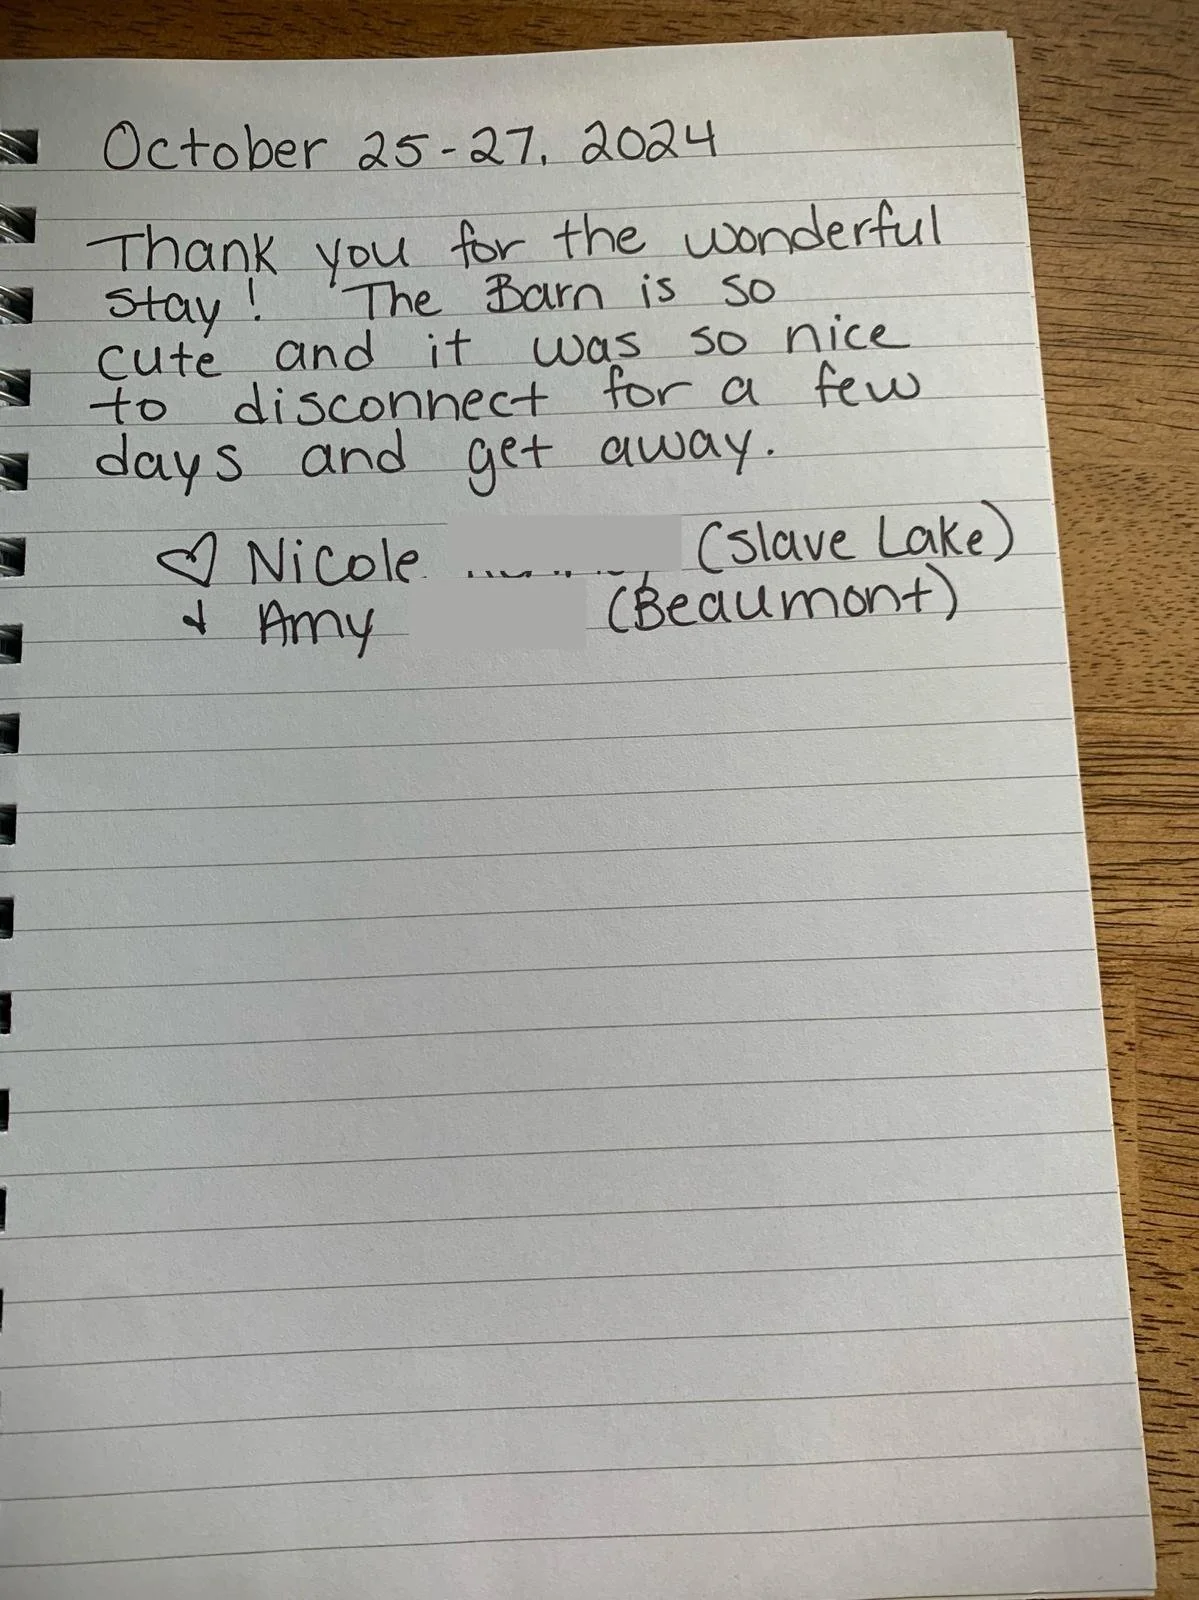 October 25-27, 2024
Thank you for the wonderful
stay! The Barn is so
cute and it was so nice
to disconnect for a few
days and get away.
♡ Nicole (Slave Lake)
& Amy (Beaumont)